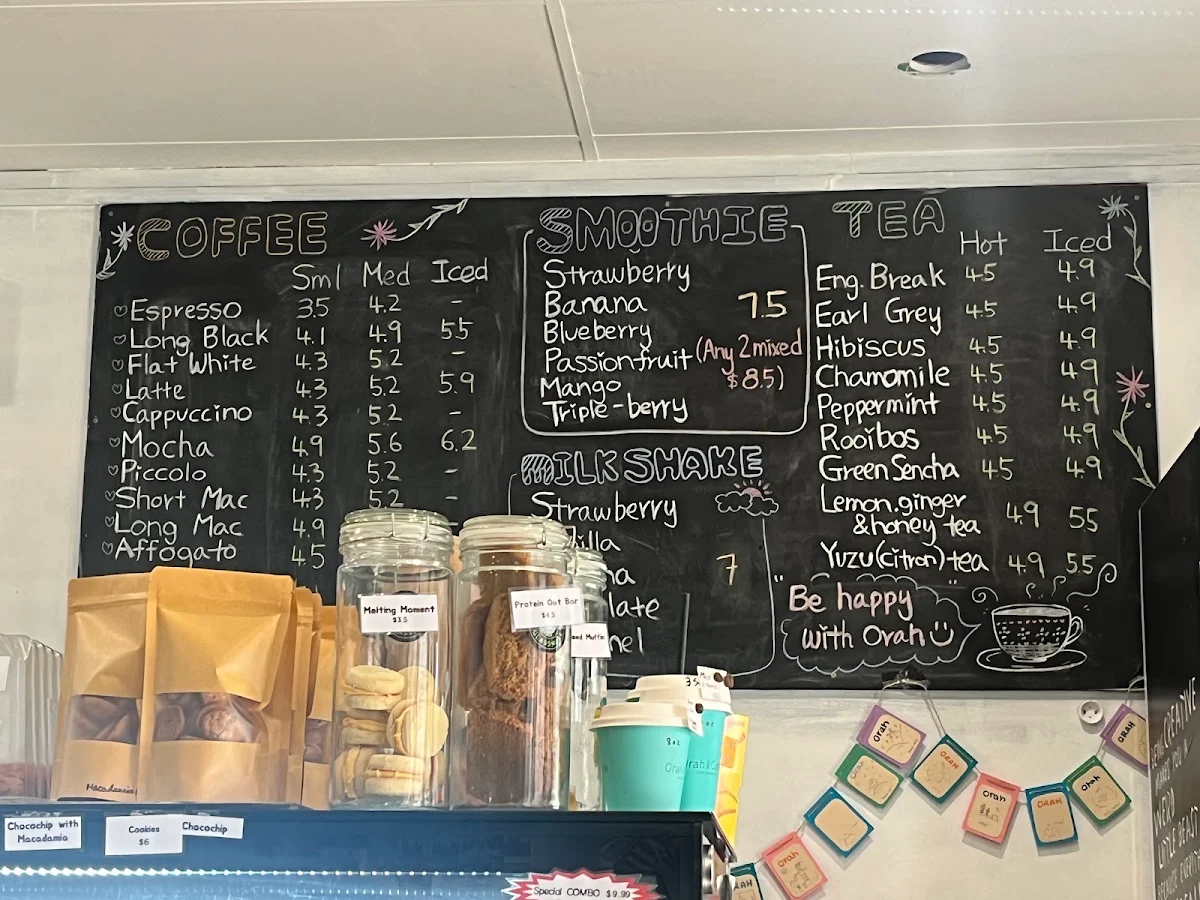 COFFEE
Sml Med Iced
Espresso 3.5 4.2 -
Long Black 4.1 4.9 5.5
Flat White 4.3 5.2 -
Latte 4.3 5.2 5.9
Cappuccino 4.3 5.2 -
Mocha 4.9 5.6 6.2
Piccolo 4.3 5.2 -
Short Mac 4.3 5.2 -
Long Mac 4.9
Affogato 4.5
SMOOTHIE
Strawberry
Banana 7.5
Blueberry
Passionfruit (Any 2 mixed
Mango $8.5)
Triple-berry
MILKSHAKE
Strawberry
illa
na 7
late
mel
TEA
Hot Iced
Eng. Break 4.5 4.9
Earl Grey 4.5 4.9
Hibiscus 4.5 4.9
Chamomile 4.5 4.9
Peppermint 4.5 4.9
Rooibos 4.5 4.9
Green Sencha 4.5 4.9
Lemon.ginger
& honey tea 4.9 5.5
Yuzu(citron) tea 4.9 5.5
"Be happy
with Orah"
Melting Moment
$3.5
Protein Oat Bar
$4.5
Muffin
Macadamia
Chocochip with
Macadamia
Cookies
$6
Chocochip
Special COMBO $9.99
8oz
Orah
Orah
ORAH
Orah
ORAH
Orah
ORAH
Orah
CREATIVE
WEIRD
BECAUSE